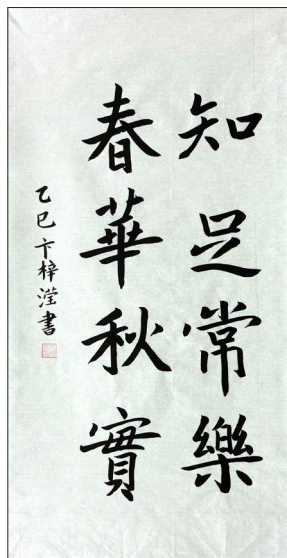 知足常樂
春華秋實
乙巳卞梓滢書